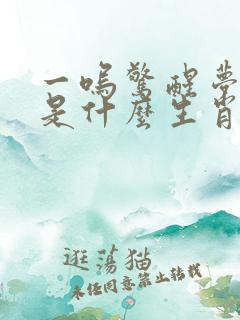 一鳴驚醒夢
是什麼生肖
逛蕩猫
未经同意禁止转载